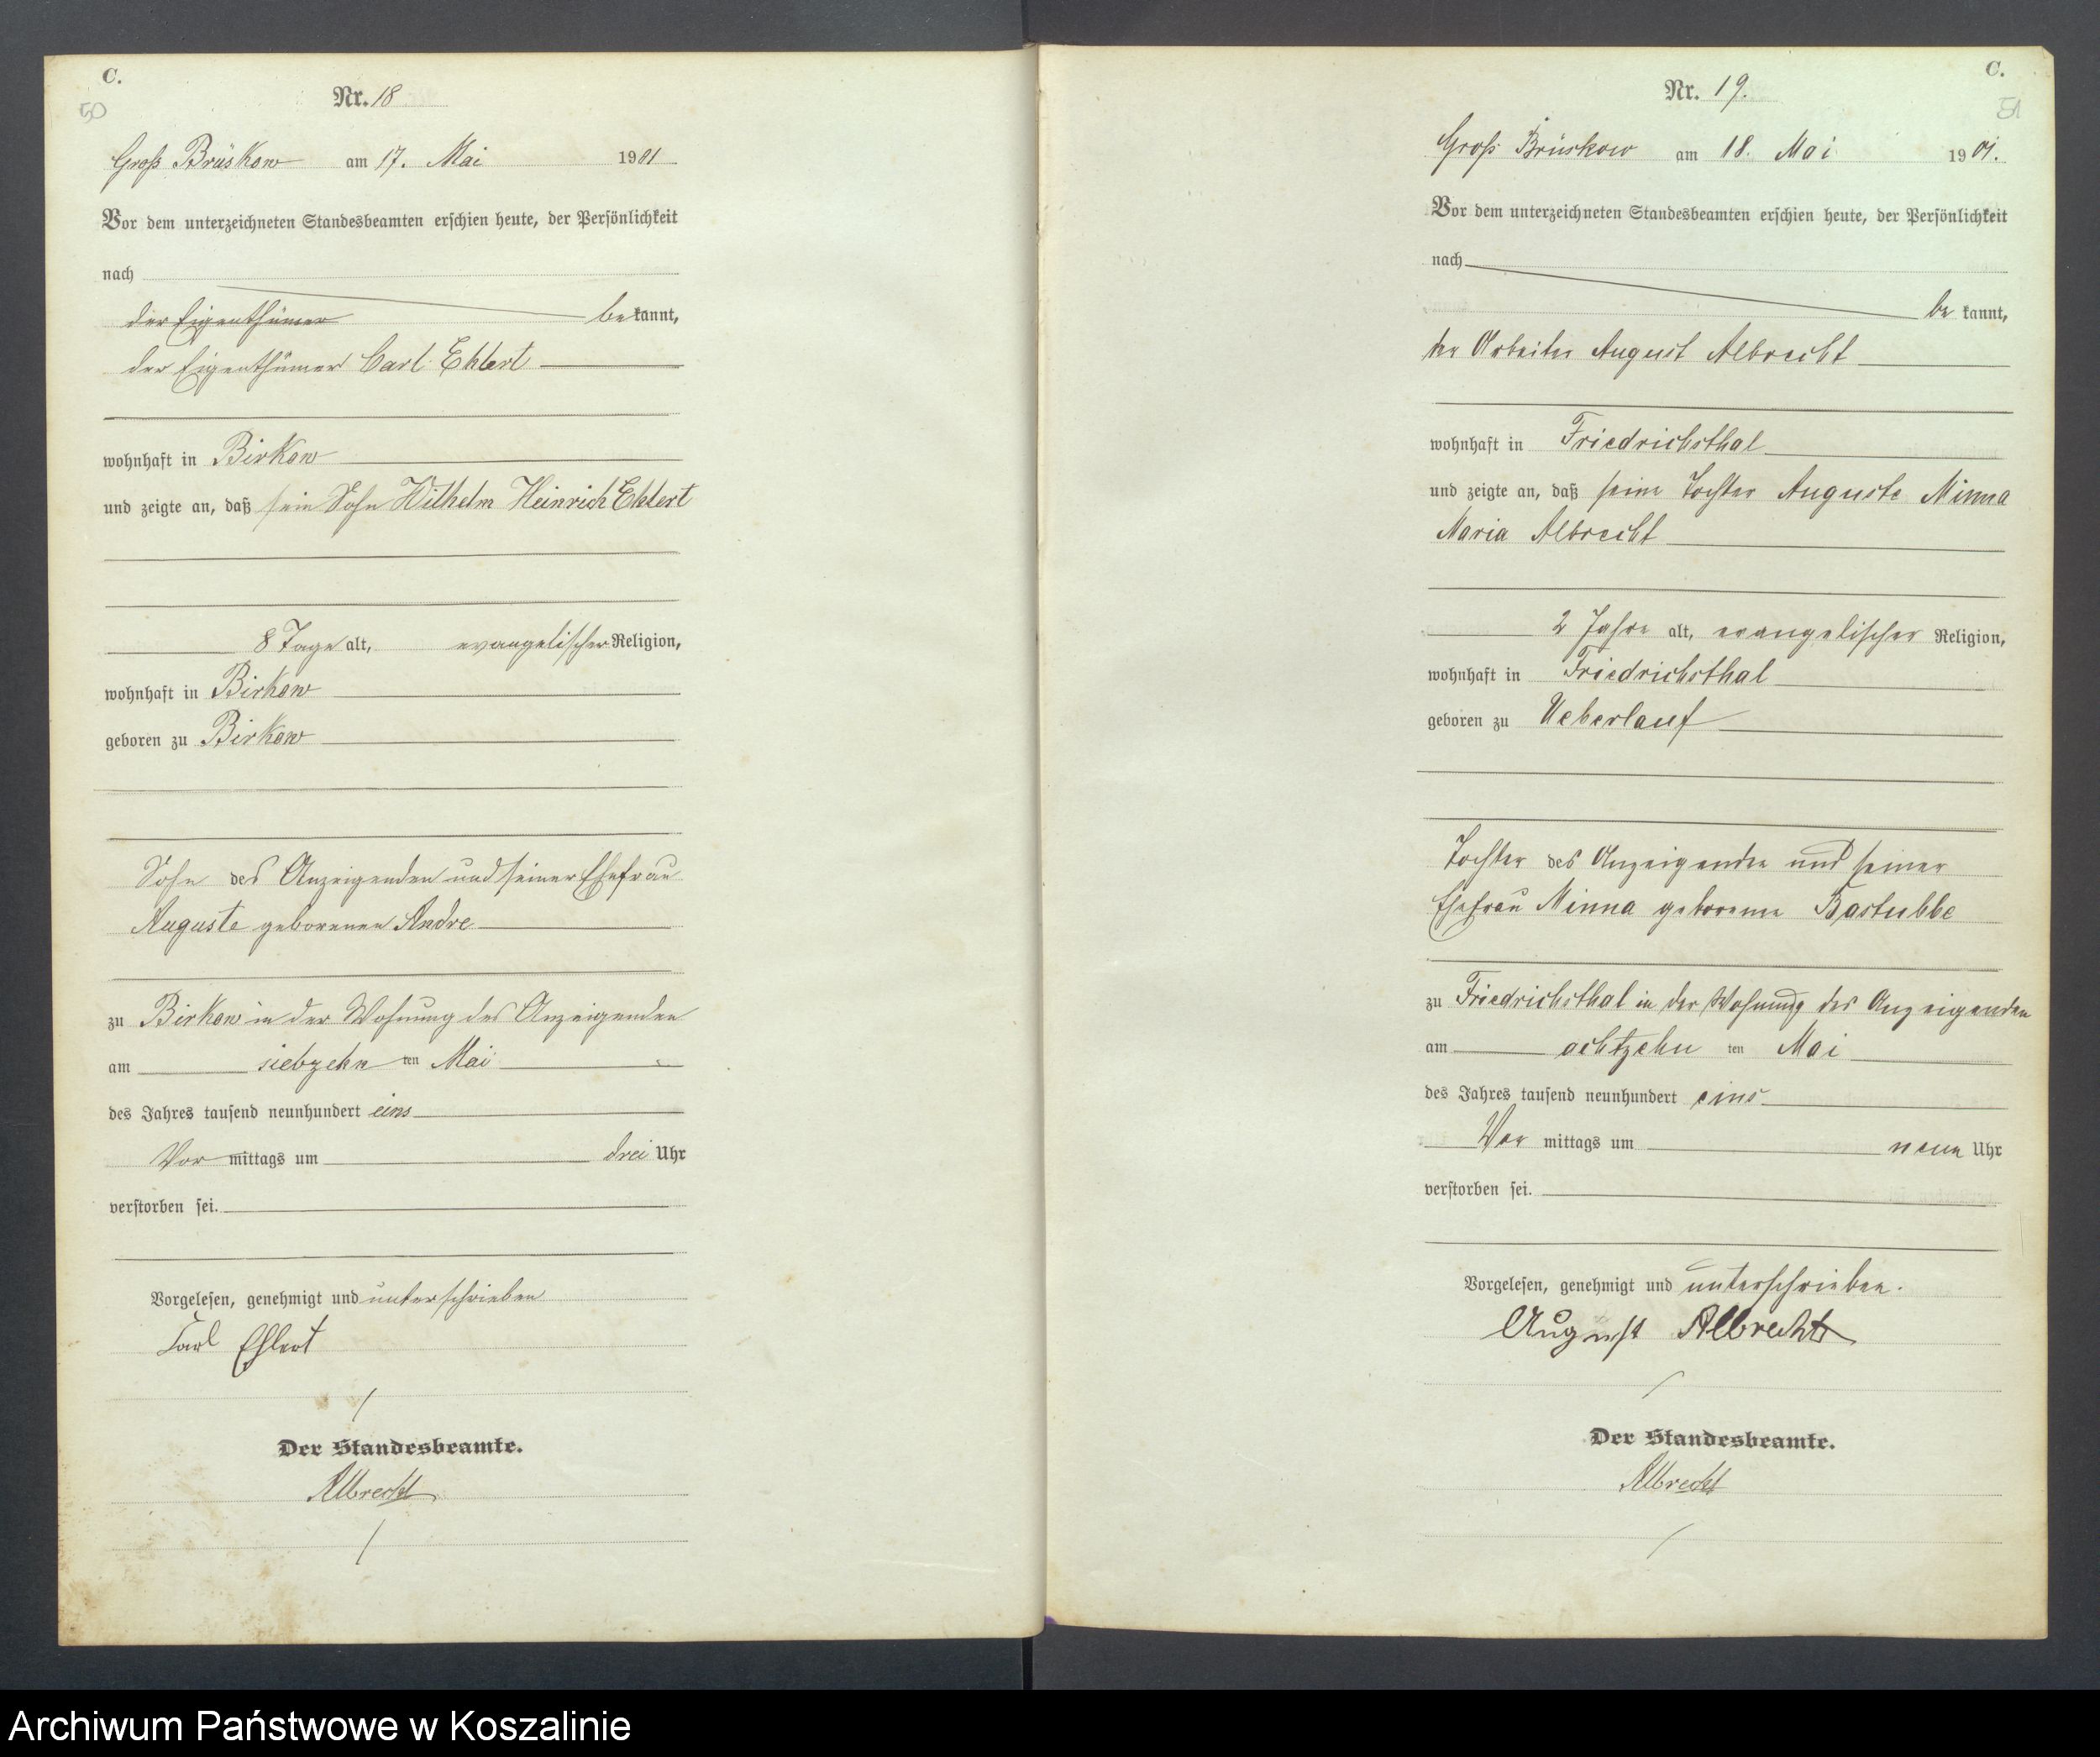 C.
50
Nr. 18
Groß Brüskow am 17. Mai 1901
Vor dem unterzeichneten Standesbeamten erschien heute, der Persönlichkeit
nach
der Eigenthümer bekannt,
der Eigenthümer Carl Ehlert
wohnhaft in Birkow
und zeigte an, daß sein Sohn Wilhelm Heinrich Ehlert
8 Tage alt, evangelischer Religion,
wohnhaft in Birkow
geboren zu Birkow
Sohn des Anzeigenden und seiner Ehefrau
Auguste geborenen Andre
zu Birkow in der Wohnung des Anzeigenden
am siebzehn ten Mai
des Jahres tausend neunhundert eins
Vor mittags um drei Uhr
verstorben sei.
Vorgelesen, genehmigt und unterschrieben
Carl Ehlert
Der Standesbeamte.
Albrecht
C.
51
Nr. 19.
Groß Brüskow am 18. Mai 1901.
Vor dem unterzeichneten Standesbeamten erschien heute, der Persönlichkeit
nach
be kannt,
der Arbeiter August Albrecht
wohnhaft in Friedrichsthal
und zeigte an, daß seine Tochter Auguste Minna
Maria Albrecht
2 Jahre alt, evangelischer Religion,
wohnhaft in Friedrichsthal
geboren zu Ueberlauf
Tochter des Anzeigenden und seiner
Ehefrau Minna geborenen Bastubbe
zu Friedrichsthal in der Wohnung des Anzeigenden
am achtzehn ten Mai
des Jahres tausend neunhundert eins
Vor mittags um neun Uhr
verstorben sei.
Vorgelesen, genehmigt und unterschrieben.
August Albrecht
Der Standesbeamte.
Albrecht
Archiwum Państwowe w Koszalinie